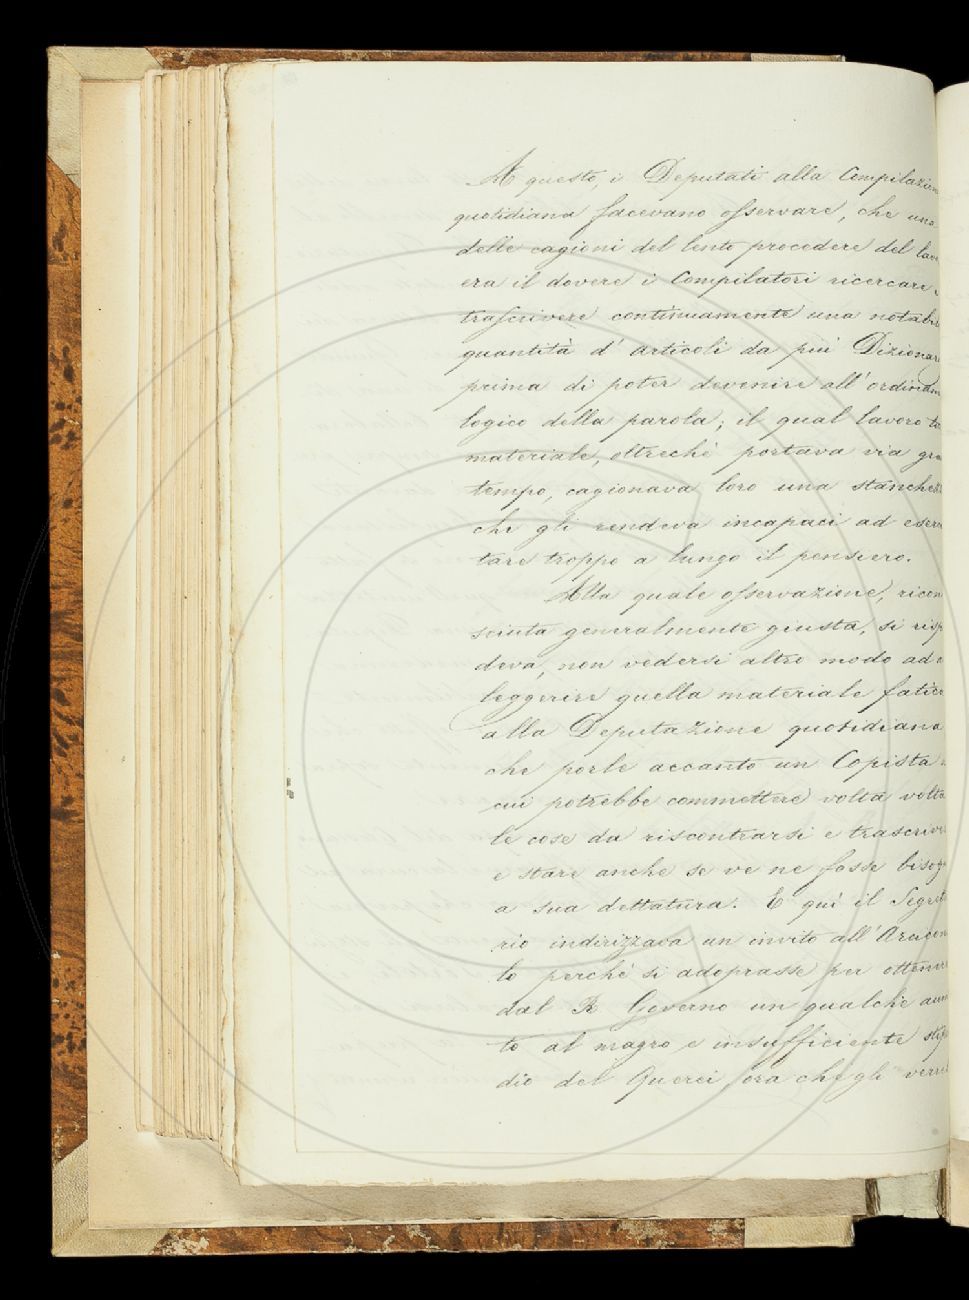 A questo, i Deputati alla Compilazion
quotidiana facevano osservare, che una
delle cagioni del lento procedere del lavo
era il dovere i Compilatori ricercare e
trascrivere continuamente una notabil
quantità d' articoli da più Dizionar
prima di poter devenire all' ordinam
logico della parola; il qual lavoro tu
materiale, oltrechè portava via gra
tempo, cagionava loro una stanchez
che gli rendeva incapaci ad eserci
tare troppo a lungo il pensiero.
Alla quale osservazione, ricon
sciuta generalmente giusta, si risp
deva, non vedersi altro modo ad a
leggerire quella materiale fatica
alla Deputazione quotidiana
che porle accanto un Copista a
cui potrebbe commettere volta volta
le cose da riscontrarsi e trascriver
e stare anche se ve ne fosse bisog
a sua dettatura. E quì il Segreta
rio indirizzava un invito all' Arcicon
lo perchè si adoprasse per ottenere
dal R. Governo un qualche aum
to al magro e insufficiente stipen
dio del Querci, ora che gli verre